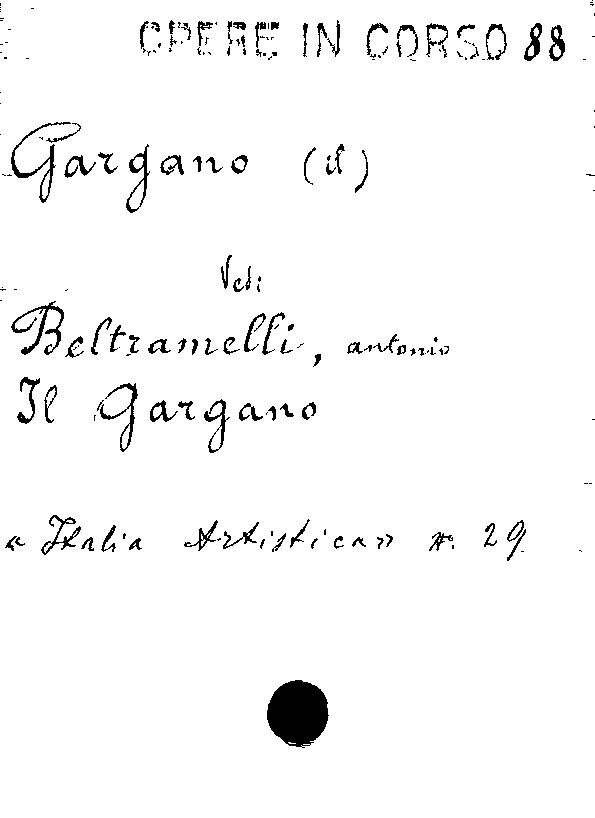 OPERE IN CORSO 88
Gargano (il)
Vedi
Beltramelli, antonio
Il Gargano
« Italia Artistica» n. 29